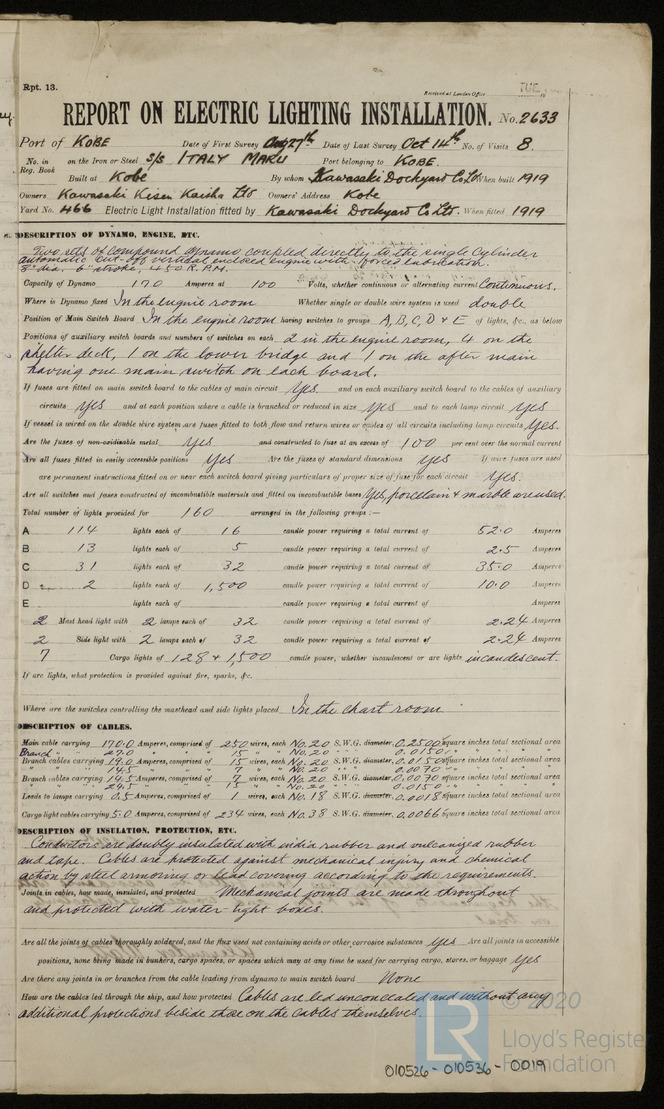 Rpt. 13.
Received at London Office TUE
REPORT ON ELECTRIC LIGHTING INSTALLATION. No. 2633
Port of KOBE Date of First Survey Aug 27th Date of Last Survey Oct 14th No. of Visits 8.
No. in Reg. Book on the Iron or Steel S/S ITALY MARU Port belonging to KOBE.
Built at Kobe By whom Kawasaki Dockyard Co Ltd When built 1919
Owners Kawasaki Kisen Kaisha Ltd Owners' Address Kobe
Yard No. 466 Electric Light Installation fitted by Kawasaki Dockyard Co Ltd. When fitted 1919
DESCRIPTION OF DYNAMO, ENGINE, ETC.
Two sets of Compound dynamo coupled directly to the single Cylinder
automatic cut-off vertical enclosed engine with forced lubrication.
8" dia. 6" stroke, 450 R.P.M.
Capacity of Dynamo 170 Amperes at 100 Volts, whether continuous or alternating current Continuous.
Where is Dynamo fixed In the engine room Whether single or double wire system is used double
Position of Main Switch Board In the engine room having switches to groups A, B, C, D & E of lights, &c., as below
Positions of auxiliary switch boards and numbers of switches on each 2 in the engine room, 4 on the
shelter deck, 1 on the lower bridge and 1 on the after main
having one main switch on each board.
If fuses are fitted on main switch board to the cables of main circuit Yes and on each auxiliary switch board to the cables of auxiliary
circuits Yes and at each position where a cable is branched or reduced in size Yes and to each lamp circuit Yes
If vessel is wired on the double wire system are fuses fitted to both flow and return wires or cables of all circuits including lamp circuits Yes.
Are the fuses of non-oxidisable metal Yes and constructed to fuse at an excess of 100 per cent over the normal current
Are all fuses fitted in easily accessible positions Yes Are the fuses of standard dimensions Yes If wire fuses are used
are permanent instructions fitted on or near each switch board giving particulars of proper size of fuse for each circuit Yes.
Are all switches and fuses constructed of incombustible materials and fitted on incombustible bases Yes, porcelain & marble are used.
Total number of lights provided for 160 arranged in the following groups :—
A 114 lights each of 16 candle power requiring a total current of 52.0 Amperes
B 13 lights each of 5 candle power requiring a total current of 2.5 Amperes
C 31 lights each of 32 candle power requiring a total current of 35.0 Amperes
D 2 lights each of 1,500 candle power requiring a total current of 10.0 Amperes
E lights each of candle power requiring a total current of Amperes
2 Mast head light with 2 lamps each of 32 candle power requiring a total current of 2.24 Amperes
2 Side light with 2 lamps each of 32 candle power requiring a total current of 2.24 Amperes
7 Cargo lights of 128 & 1,500 candle power, whether incandescent or arc lights incandescent.
If arc lights, what protection is provided against fire, sparks, &c.
Where are the switches controlling the masthead and side lights placed In the chart room
DESCRIPTION OF CABLES.
Main cable carrying 170.0 Amperes, comprised of 250 wires, each No. 20 S.W.G. diameter, 0.2500 square inches total sectional area
Branch " " 27.0 " " 15 " " No. 20 " " 0.0150 " " " "
Branch cables carrying 19.0 Amperes, comprised of 15 wires, each No. 20 S.W.G. diameter, 0.0150 square inches total sectional area
" " 14.5 " " 7 " " No. 20 " " 0.0070 " " " "
Branch cables carrying 14.5 Amperes, comprised of 7 wires, each No. 20 S.W.G. diameter, 0.0070 square inches total sectional area
" " 24.5 " " 15 " " No. 20 " " 0.0150 " " " "
Leads to lamps carrying 0.5 Amperes, comprised of 1 wires, each No. 18 S.W.G. diameter, 0.0018 square inches total sectional area
Cargo light cables carrying 5.0 Amperes, comprised of 234 wires, each No. 38 S.W.G. diameter, 0.0066 square inches total sectional area
DESCRIPTION OF INSULATION, PROTECTION, ETC.
Conductors are doubly insulated with india rubber and vulcanized rubber
and tape. Cables are protected against mechanical injury and chemical
action by steel armoring or lead covering according to the requirements.
Joints in cables, how made, insulated, and protected Mechanical joints are made throughout
and protected with water-tight boxes.
Are all the joints of cables thoroughly soldered, and the flux used not containing acids or other corrosive substances Yes Are all joints in accessible
positions, none being made in bunkers, cargo spaces, or spaces which may at any time be used for carrying cargo, stores, or baggage Yes
Are there any joints in or branches from the cable leading from dynamo to main switch board None
How are the cables led through the ship, and how protected Cables are led unconcealed and without any
additional protections beside those on the cables themselves.
© 2020
LR
Lloyd's Register
Foundation
010526 - 010536 - 0019